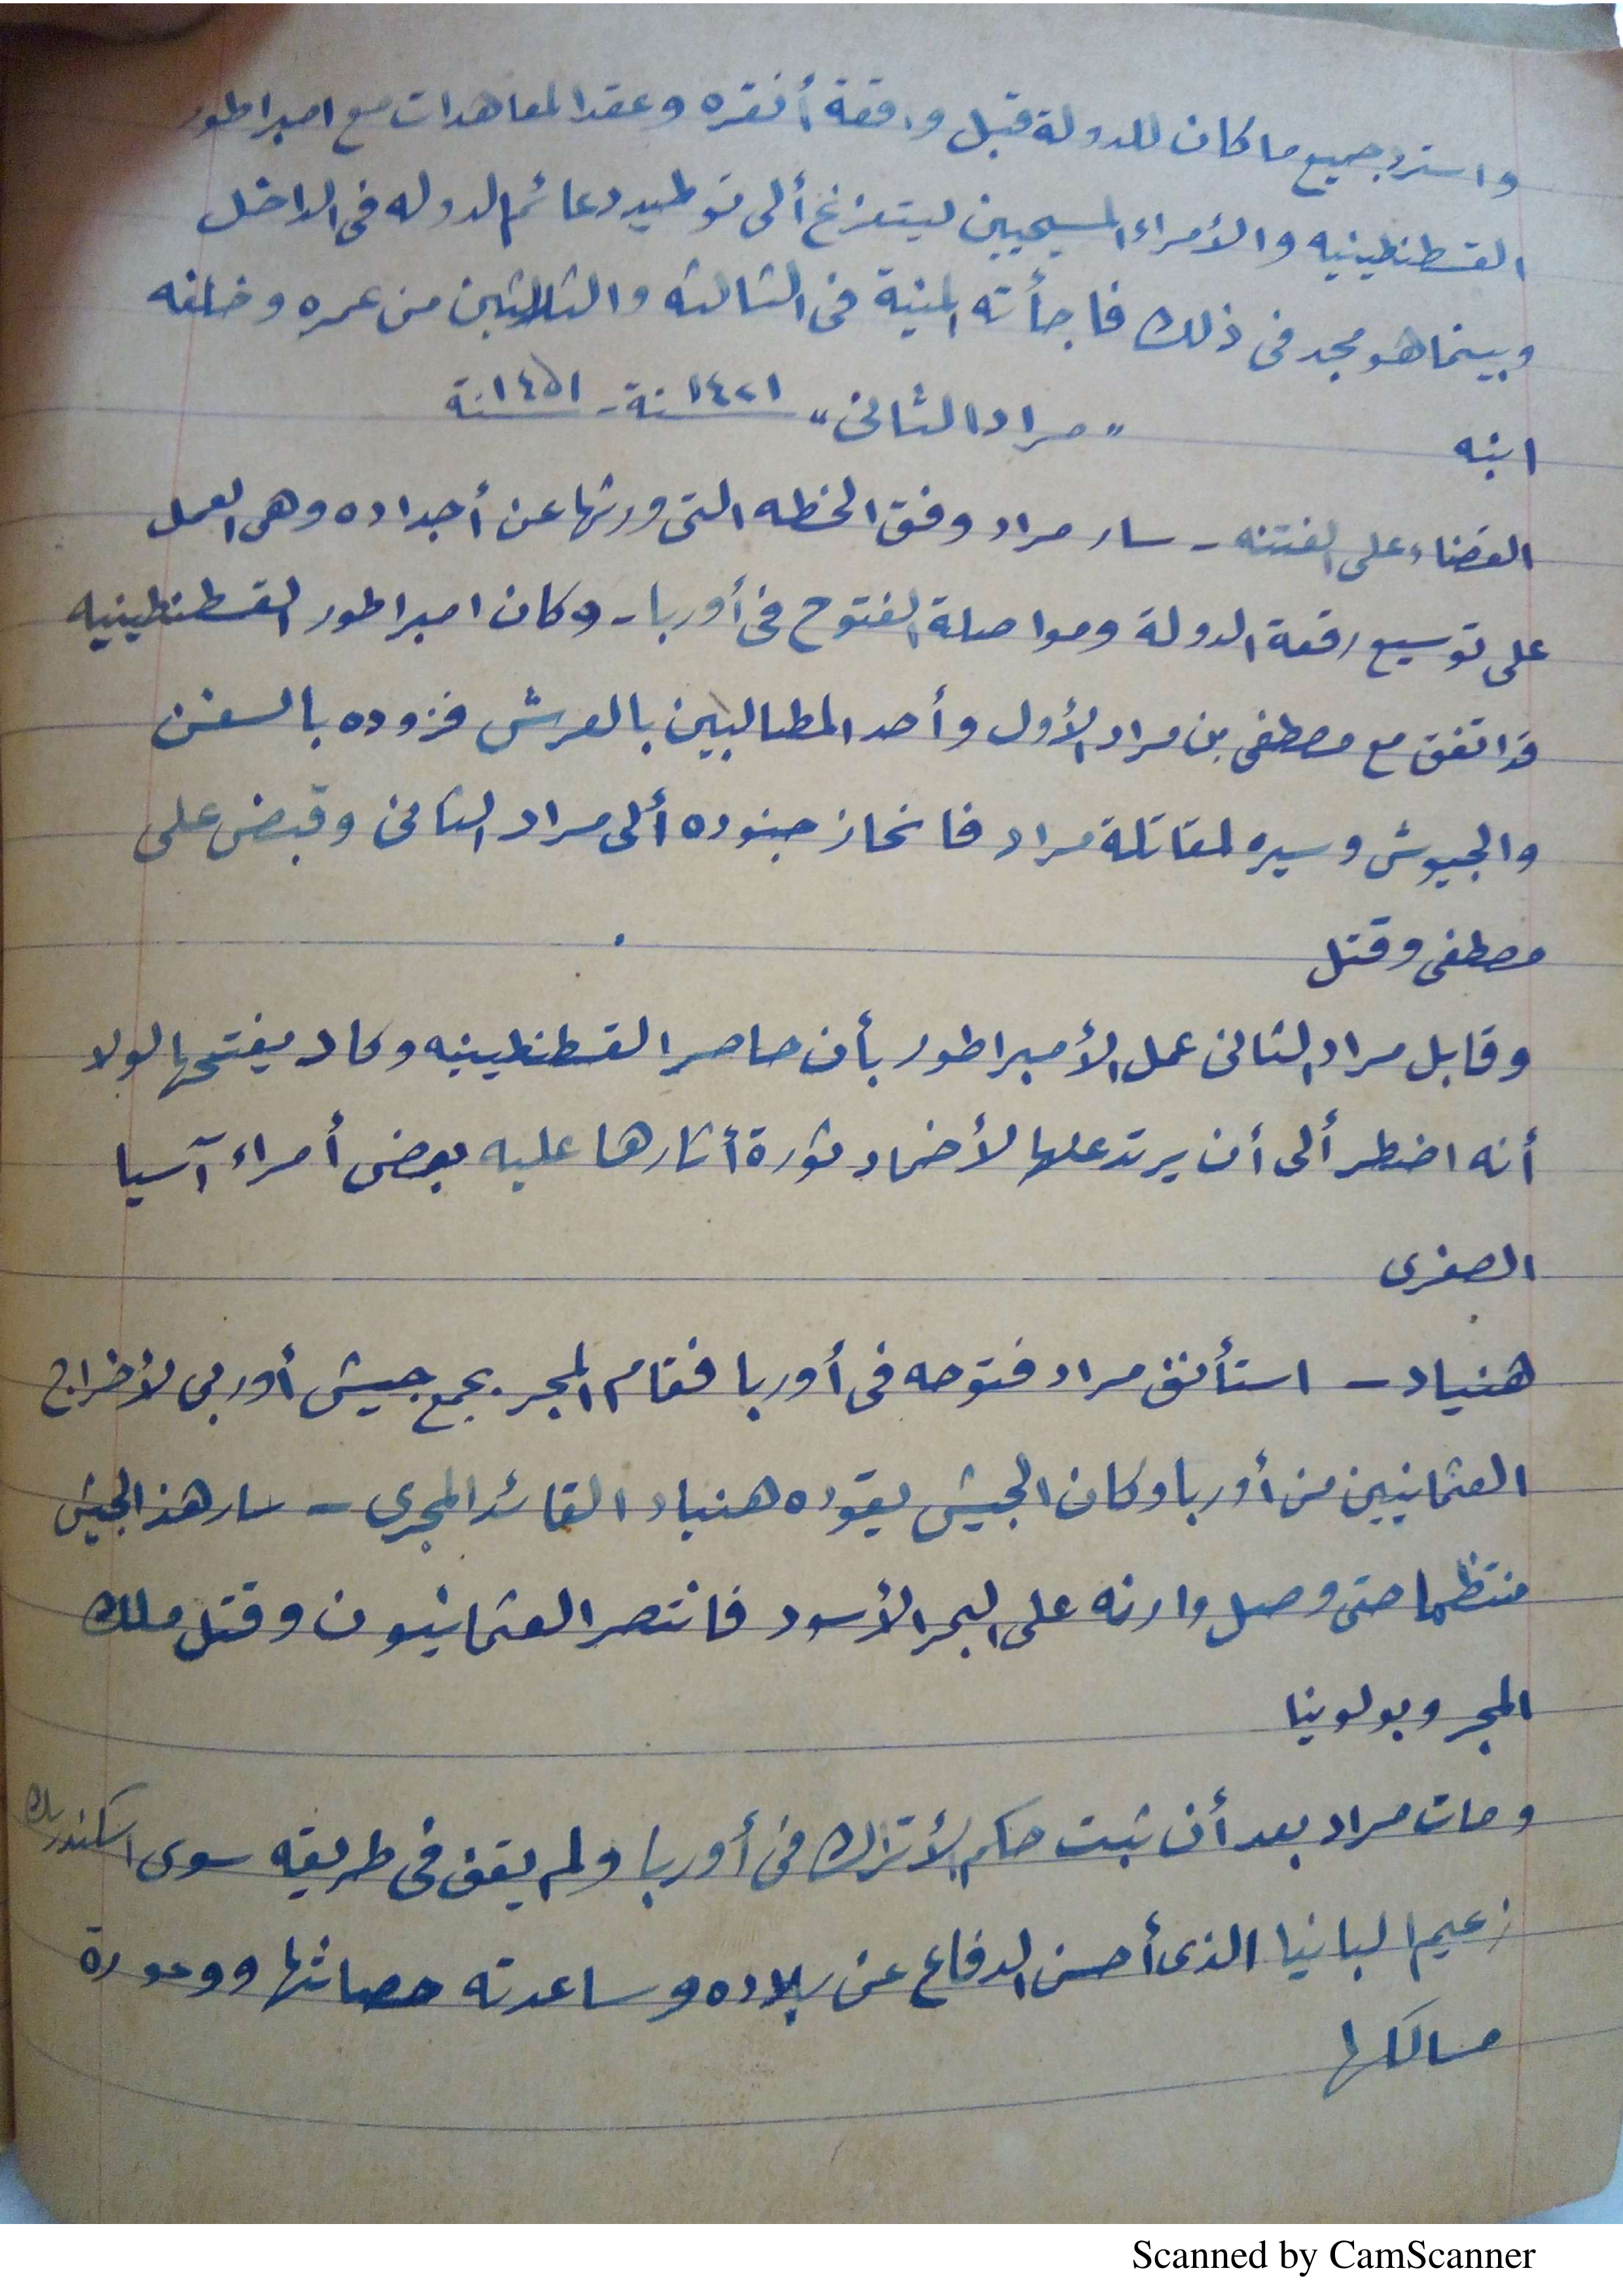 واسترد جميع ما كان للدولة قبل واقعة أنقره وعقد المعاهدات مع امبراطور
القسطنطينيه والأمراء المسيحيين ليتفرغ ألى توطيد دعائم الدوله فى الداخل
وبينما هو مجد فى ذلك فاجأته المنية فى الثالثه والثلاثين من عمره وخلفه
ابنه
"مراد الثانى" ١٤٢١ سنة - ١٤٥١ سنة
القضاء على الفتنه - سار مراد وفق الخطه التى ورثها عن أجداده وهى العمل
على توسيع رقعة الدولة ومواصلة الفتوح فى أوربا - وكان امبراطور القسطنطينيه
قد اتفق مع مصطفى بن مراد الأول وأحد المطالبين بالعرش فزوده بالسفن
والجيوش وسيره لمقاتلة مراد فانحاز جنوده ألى مراد الثانى وقبض على
مصطفى وقتل
وقابل مراد الثانى عمل الأمبراطور بأن حاصر القسطنطينيه وكاد يفتحها لولا
أنه اضطر ألى أن يرتد عنها لأخماد ثورة أثارها عليه بعض أمراء آسيا
الصغرى
هنياد - استأنف مراد فتوحه فى أوربا فقام المجر بجمع جيش أوربى لأخراج
العثمانيين من أوربا وكان الجيش يقوده هنياد القائد المجرى - سار هذا الجيش
منتظما حتى وصل وارنه على البحر الأسود فانتصر العثمانيون وقتل ملك
المجر وبولونيا
ومات مراد بعد أن ثبت حكم الأتراك فى أوربا ولم يقف فى طريقه سوى اسكندربك
زعيم البانيا الذى أحسن الدفاع عن بلاده وساعدته حصانتها ووعورة
مسالكها
Scanned by CamScanner